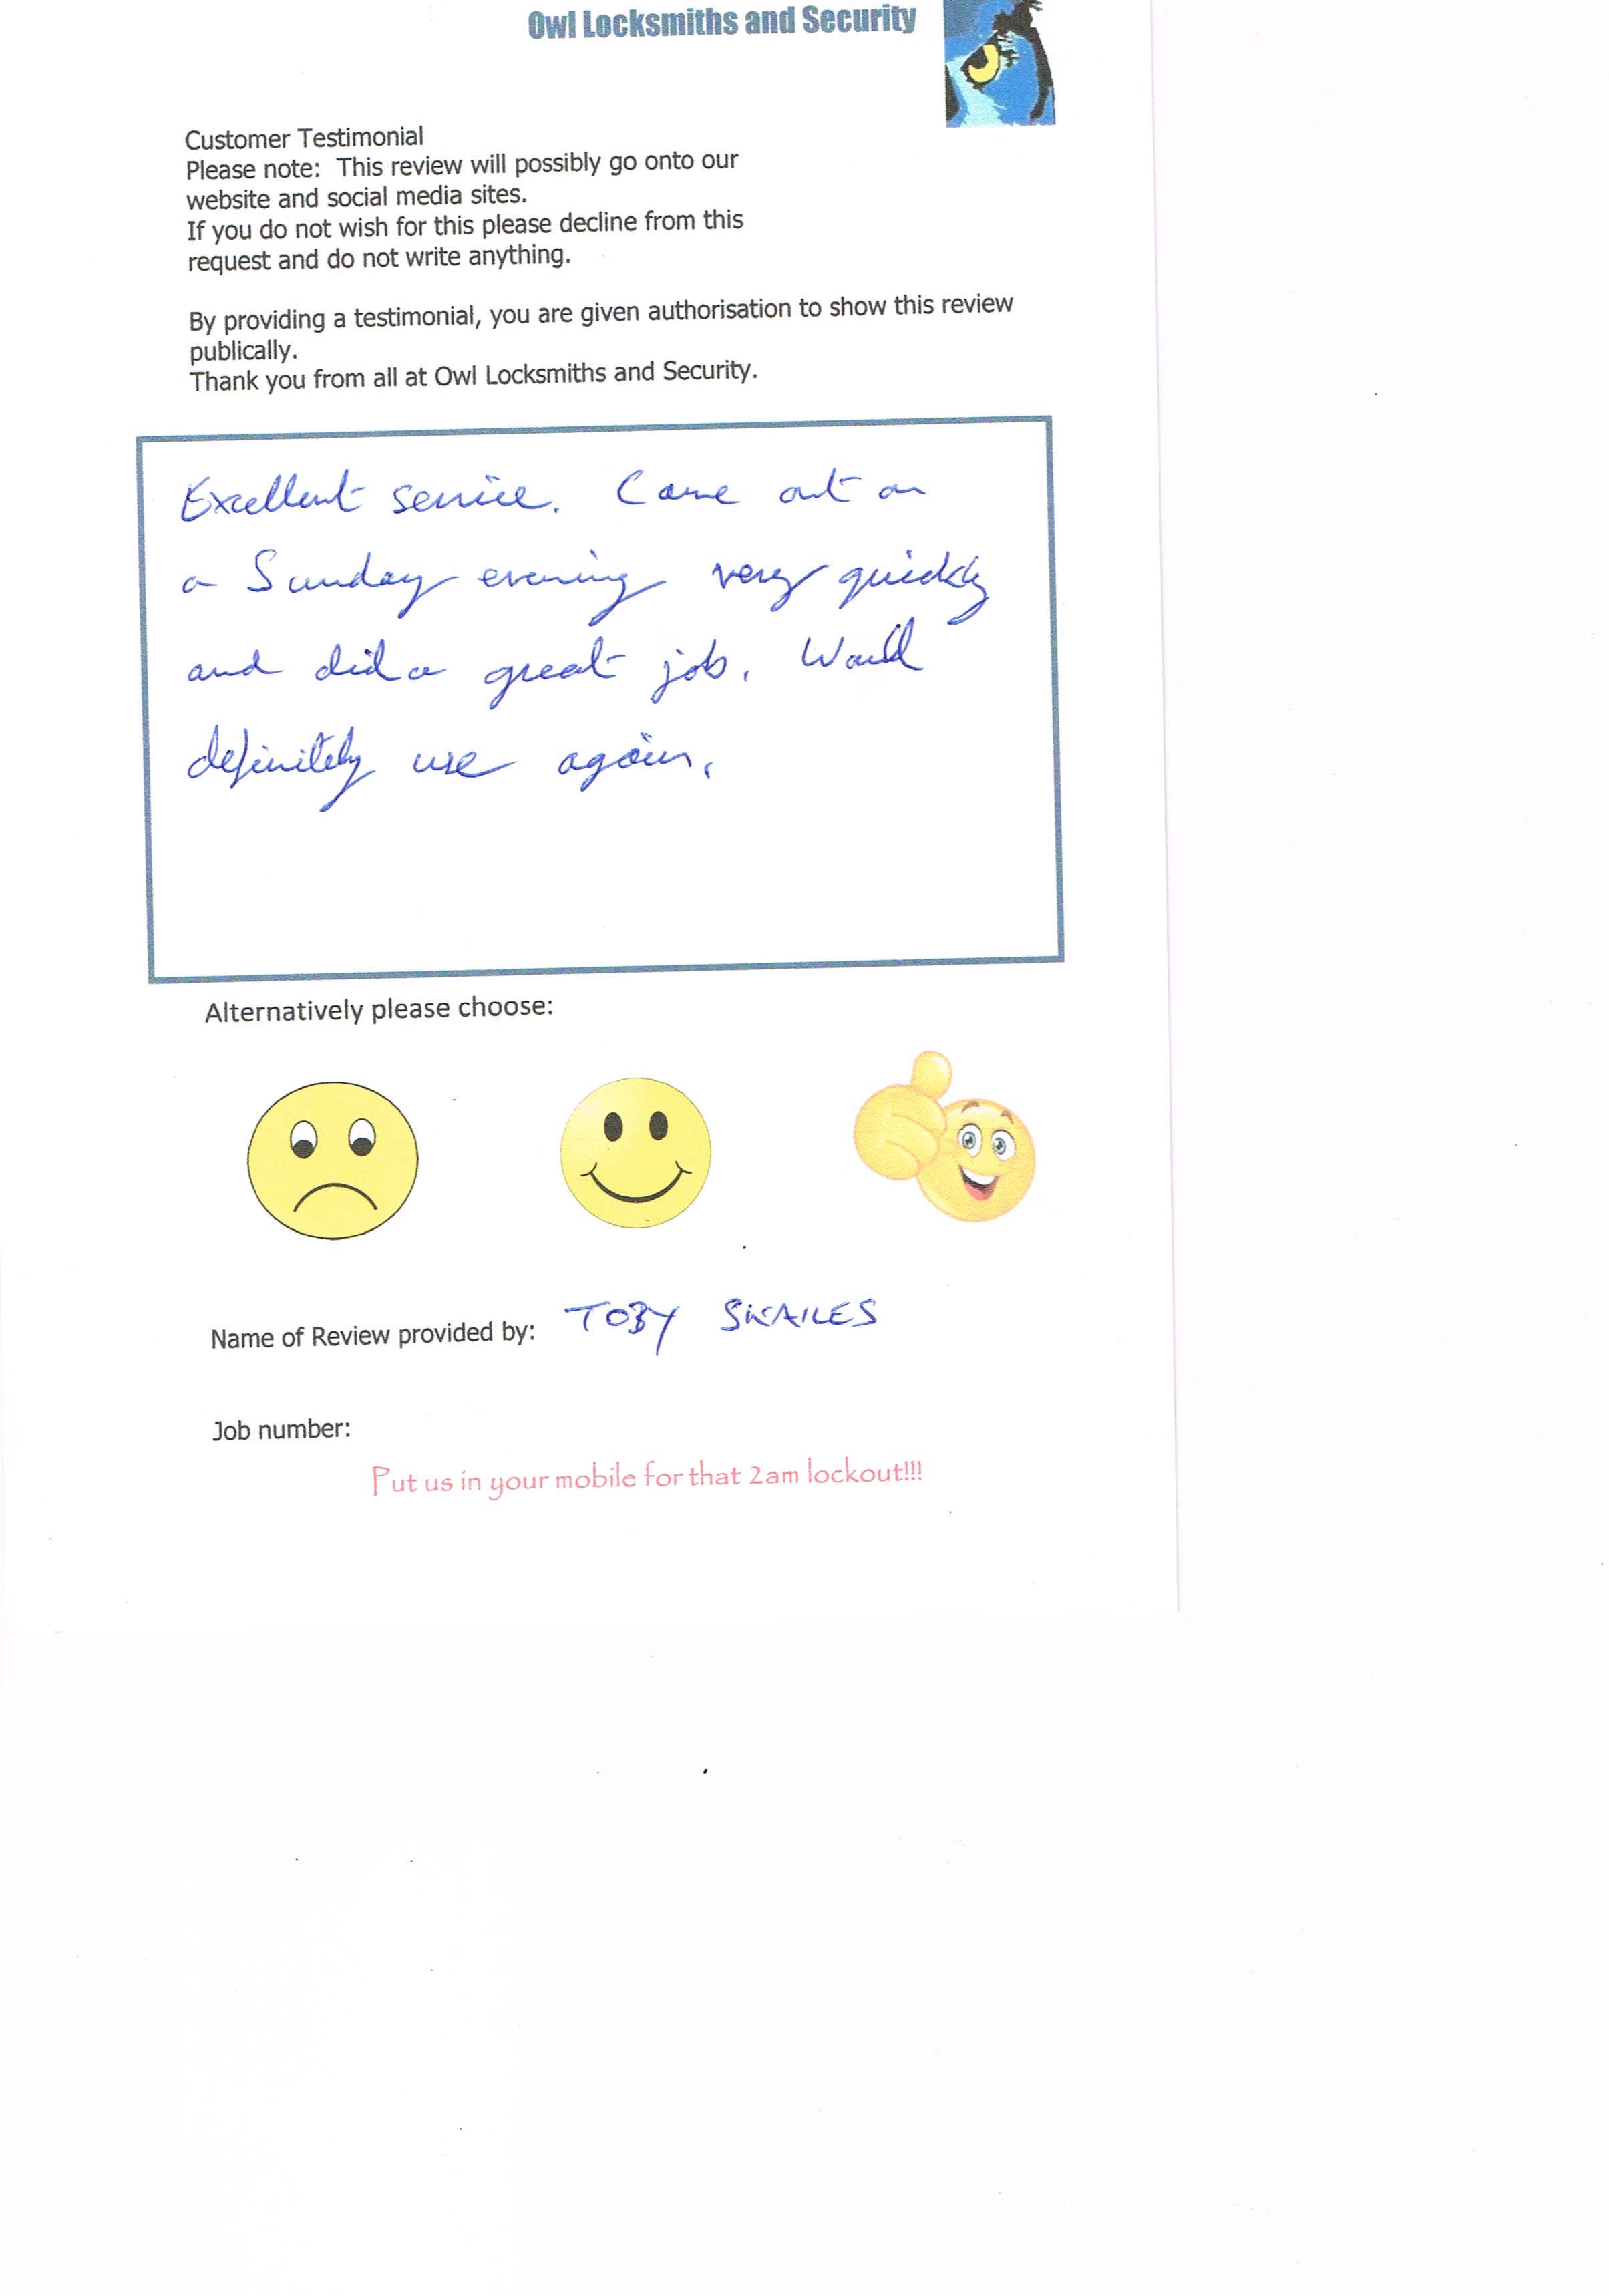 Owl Locksmiths and Security
Customer Testimonial
Please note:  This review will possibly go onto our
website and social media sites.
If you do not wish for this please decline from this
request and do not write anything.
By providing a testimonial, you are given authorisation to show this review
publically.
Thank you from all at Owl Locksmiths and Security.
Excellent service. Came out on
a Sunday evening very quickly
and did a great job. Would
definitely use again.
Alternatively please choose:
Name of Review provided by: TOBY SWAILES
Job number:
Put us in your mobile for that 2am lockout!!!